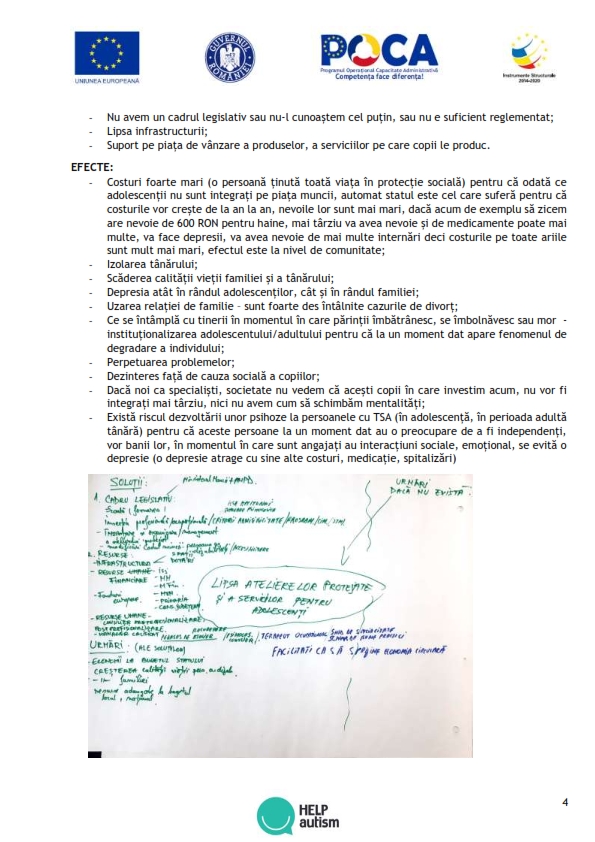 UNIUNEA EUROPEANĂ
GUVERNUL ROMÂNIEI
POCA
Programul Operațional Capacitate Administrativă
Competența face diferența!
Instrumente Structurale
2014-2020
- Nu avem un cadrul legislativ sau nu-l cunoaștem cel puțin, sau nu e suficient reglementat;
- Lipsa infrastructurii;
- Suport pe piața de vânzare a produselor, a serviciilor pe care copii le produc.
EFECTE:
- Costuri foarte mari (o persoană ținută toată viața în protecție socială) pentru că odată ce
adolescenții nu sunt integrați pe piața muncii, automat statul este cel care suferă pentru că
costurile vor crește de la an la an, nevoile lor sunt mai mari, dacă acum de exemplu să zicem
are nevoie de 600 RON pentru haine, mai târziu va avea nevoie și de medicamente poate mai
multe, va face depresii, va avea nevoie de mai multe internări deci costurile pe toate ariile
sunt mult mai mari, efectul este la nivel de comunitate;
- Izolarea tânărului;
- Scăderea calității vieții familiei și a tânărului;
- Depresia atât în rândul adolescenților, cât și în rândul familiei;
- Uzarea relației de familie – sunt foarte des întâlnite cazurile de divorț;
- Ce se întâmplă cu tinerii în momentul în care părinții îmbătrânesc, se îmbolnăvesc sau mor -
instituționalizarea adolescentului/adultului pentru că la un moment dat apare fenomenul de
degradare a individului;
- Perpetuarea problemelor;
- Dezinteres față de cauza socială a copiilor;
- Dacă noi ca specialiști, societate nu vedem că acești copii în care investim acum, nu vor fi
integrați mai târziu, nici nu avem cum să schimbăm mentalități;
- Există riscul dezvoltării unor psihoze la persoanele cu TSA (în adolescență, în perioada adultă
tânără) pentru că aceste persoane la un moment dat au o preocupare de a fi independenți,
vor banii lor, în momentul în care sunt angajați au interacțiuni sociale, emoțional, se evită o
depresie (o depresie atrage cu sine alte costuri, medicație, spitalizări)
SOLUȚII:
URMĂRI
DACĂ NU EXISTĂ
1. CADRU LEGISLATIV
2. RESURSE
- INFRASTRUCTURĂ
- RESURSE
FINANCIARE
- Fonduri
europene
- PRIMĂRIA
LIPSA ATELIERELOR PROTEJATE
ȘI A SERVICIILOR PENTRU
ADOLESCENȚI
- RESURSE UMANE
TERAPEUT OCUPAȚIONAL
FACILITĂȚI CA SĂ SPRIJINE ECONOMIA CIRCULARĂ
URMĂRI: (ALE SOLUȚIILOR)
LA BUGETUL STATULUI
CREȘTEREA calității vieții
familiei
HELP
autism
4